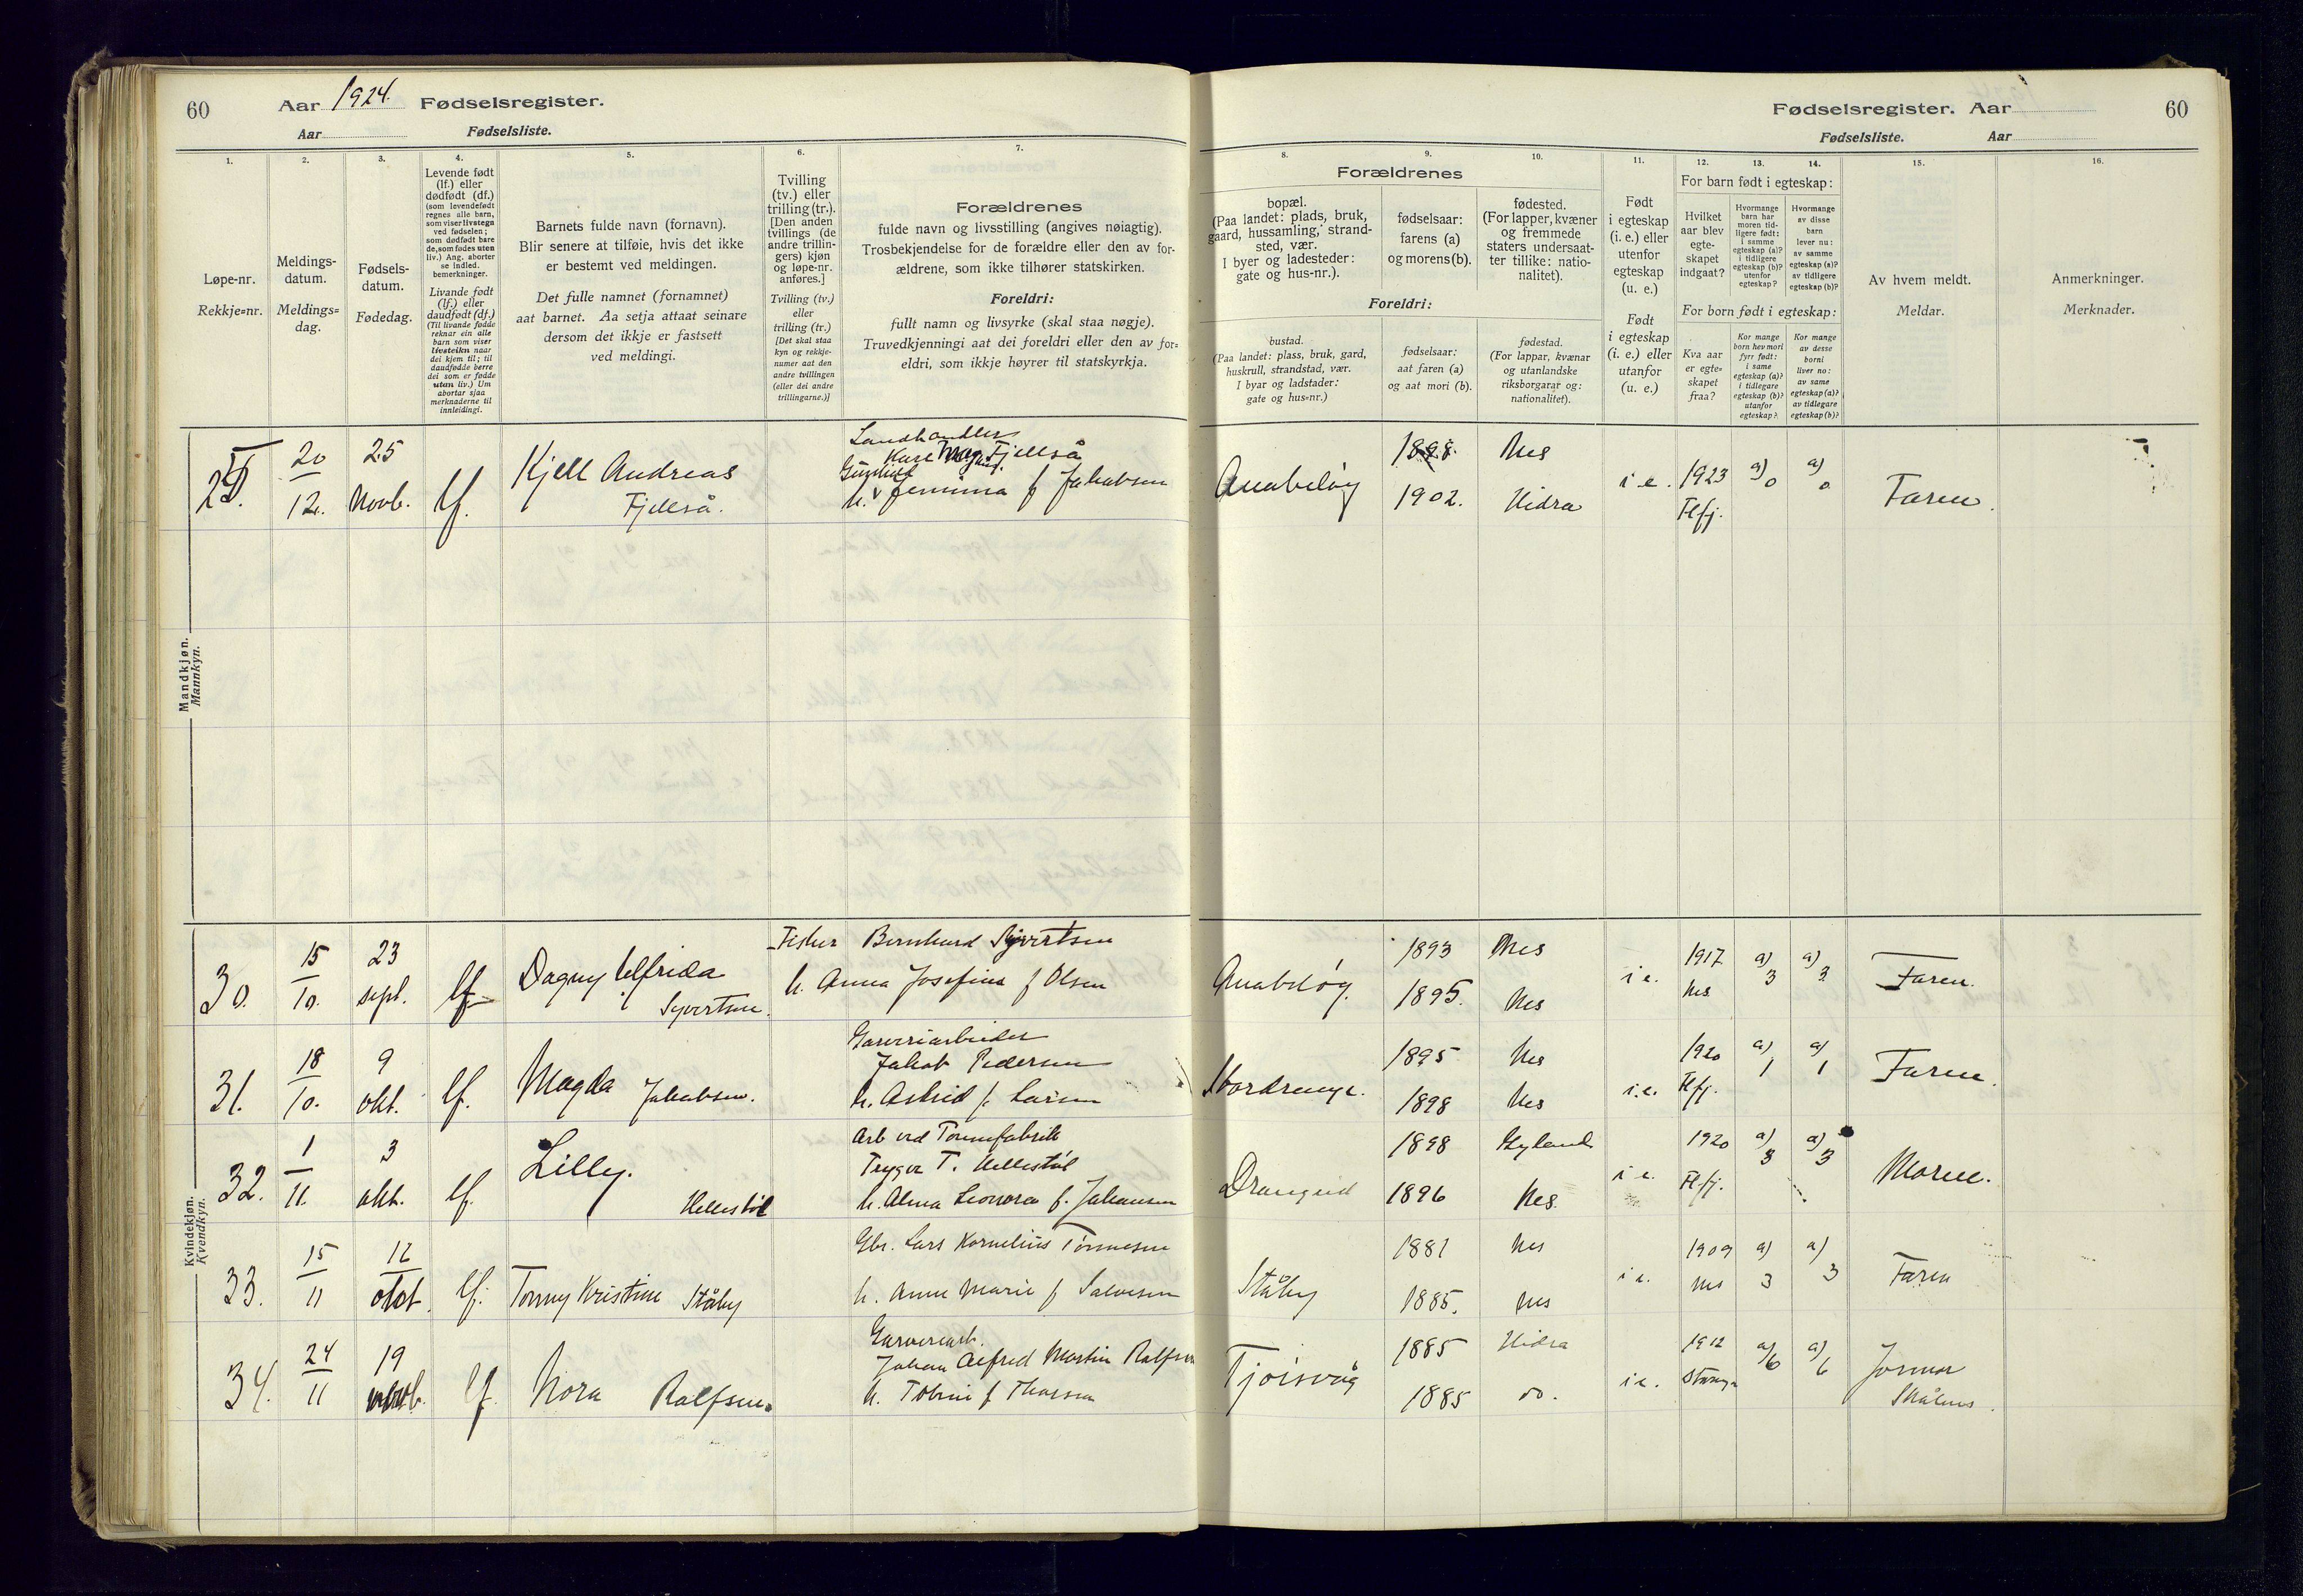 60 Aar 1924. Fødselsregister.
Aar Fødselsliste.
1. 2. 3. 4. 5. 6. 7.
Løpe-nr.
Rekkje=nr.
Meldings-
datum.
Meldings=
dag.
Fødsels-
datum.
Fødedag.
Levende født
(lf.) eller
dødfødt (df.)
(som levendefødt
regnes alle barn,
som viser livstegn
ved fødselen;
som dødfødt bare
de, som fødes uten
liv.) Ang. aborter
se indled.
bemerkninger.
Livande født
(lf.) eller
daudfødt (df.)
(Til livande fødde
reknar ein alle
barn som viser
livsteikn naar
dei kjem til; til
daudfødde berre
dei som er fødde
utan liv.) Um
abortar sjaa
merknaderne til
innleidingi.
Barnets fulde navn (fornavn).
Blir senere at tilføie, hvis det ikke
er bestemt ved meldingen.
Det fulle namnet (fornamnet)
aat barnet. Aa setja attaat seinare
dersom det ikkje er fastsett
ved meldingi.
Tvilling
(tv.) eller
trilling (tr.).
[Den anden
tvillings (de
andre trillin-
gers) kjøn
og løpe-nr.
anføres.]
Tvilling (tv.)
eller
trilling (tr.)
[Det skal staa
kyn og rekkje-
numer aat den
andre tvillingen
(eller dei andre
trillingarne.)]
Forældrenes
fulde navn og livsstilling (angives nøiagtig).
Trosbekjendelse for de forældre eller den av for-
ældrene, som ikke tilhører statskirken.
Foreldri:
fullt namn og livsyrke (skal staa nøgje).
Truvedkjenningi aat dei foreldri eller den av for=
eldri, som ikkje høyrer til statskyrkja.
Mandkjøn.
Mannkyn.
20
12. 25
Novb. lf. Kjell Andreas
Fjellså.
Landhandler
Karl Fjellså
h. Jemima f Jakobsen
Kvindekjøn.
Kvendkyn.
30. 15
10. 23
sept. lf Dagny Alfrida
Syvertsen.
Fisker Bernhard Syvertsen
h. Anna Josefine f Olsen
31. 18
10. 9
okt. lf. Magda Jakobsen.
Garveriarbeider
Jakob Pedersen
h. Astrid f. Larsen
32. 1
11. 3
okt. lf. Lilly.
Hellestøl
Arb ved Tønnefabrik
Trygve T. Hellestøl
h. Alma Leonora f. Johansen
33. 15
11 12
okt. lf. Tonny Kristine Ståby
Gbr. Lars Kornelius Tønnesen
h. Anne Marie f Salvesen
34. 24
11 19
novb. lf. Nora Ralfsen.
Garveriarb.
Johan Alfred Martin Ralfsen
h. Tobine f Thorsen
Fødselsregister. Aar 60
Fødselsliste. Aar
8. 9. 10. 11. 12. 13. 14. 15. 16.
Forældrenes
bopæl.
(Paa landet: plads, bruk,
gaard, hussamling, strand-
sted, vær.
I byer og ladesteder:
gate og hus-nr.).
fødselsaar:
farens (a)
og morens (b).
fødested.
(For lapper, kvæner
og fremmede
staters undersaat-
ter tillike: natio-
nalitet).
Foreldri:
bustad.
(Paa landet: plass, bruk, gard,
huskrull, strandstad, vær.
I byar og ladstader:
gate og hus=nr.)
fødselsaar:
aat faren (a)
og aat mori (b).
fødestad.
(For lappar, kvænar
og utanlandske
riksborgarar og:
nationalitet).
Født
i egteskap
(i. e.) eller
utenfor
egteskap
(u. e.)
Født
i egteskap
(i. e.) eller
utanfor
(u. e.)
For barn født i egteskap:
Hvilket
aar blev
egte-
skapet
indgaat?
Hvormange
barn har
moren tid-
ligere født:
i samme
egteskap (a)?
i tidligere
egteskap (b)?
utenfor
egteskap?
Hvormange
av disse
barn
lever nu:
av samme
egteskap (a)?
av tidligere
egteskap (b)?
For born født i egteskap:
Kva aar
er egte=
skapet
fraa?
Kor mange
born hev mori
fyrr født:
i same
egteskap (a)?
i tidlegare
egteskap (b)?
utanfor
egteskap?
Kor mange
av desse
borni
liver no:
av same
egteskap (a)?
av tidlegare
egteskap (b)?
Av hvem meldt.
Meldar.
Anmerkninger.
Merknader.
Anabeløy 1898. Nes
1902. Hidra i e. 1923
Flfj. a) 0 a) 0 Faren.
Anabeløy. 1893 Nes
1895. Nes i e. 1917
Nes a) 3 a) 3 Faren.
Stordrange. 1895 Nes
1898 Nes i. e. 1920
Flfj. a) 1 a) 1 Faren.
Drangeid 1898 Gyland
1896 Nes. i e. 1920
Flfj. a) 3 a) 3 Moren.
Ståby 1881 Nes
1885. Nes i e. 1909
Nes a) 3 a) 3 Faren
Tjørsvåg 1885 Hidra
1885 do. i e. 1912
a) 6 a) 6 Jormor